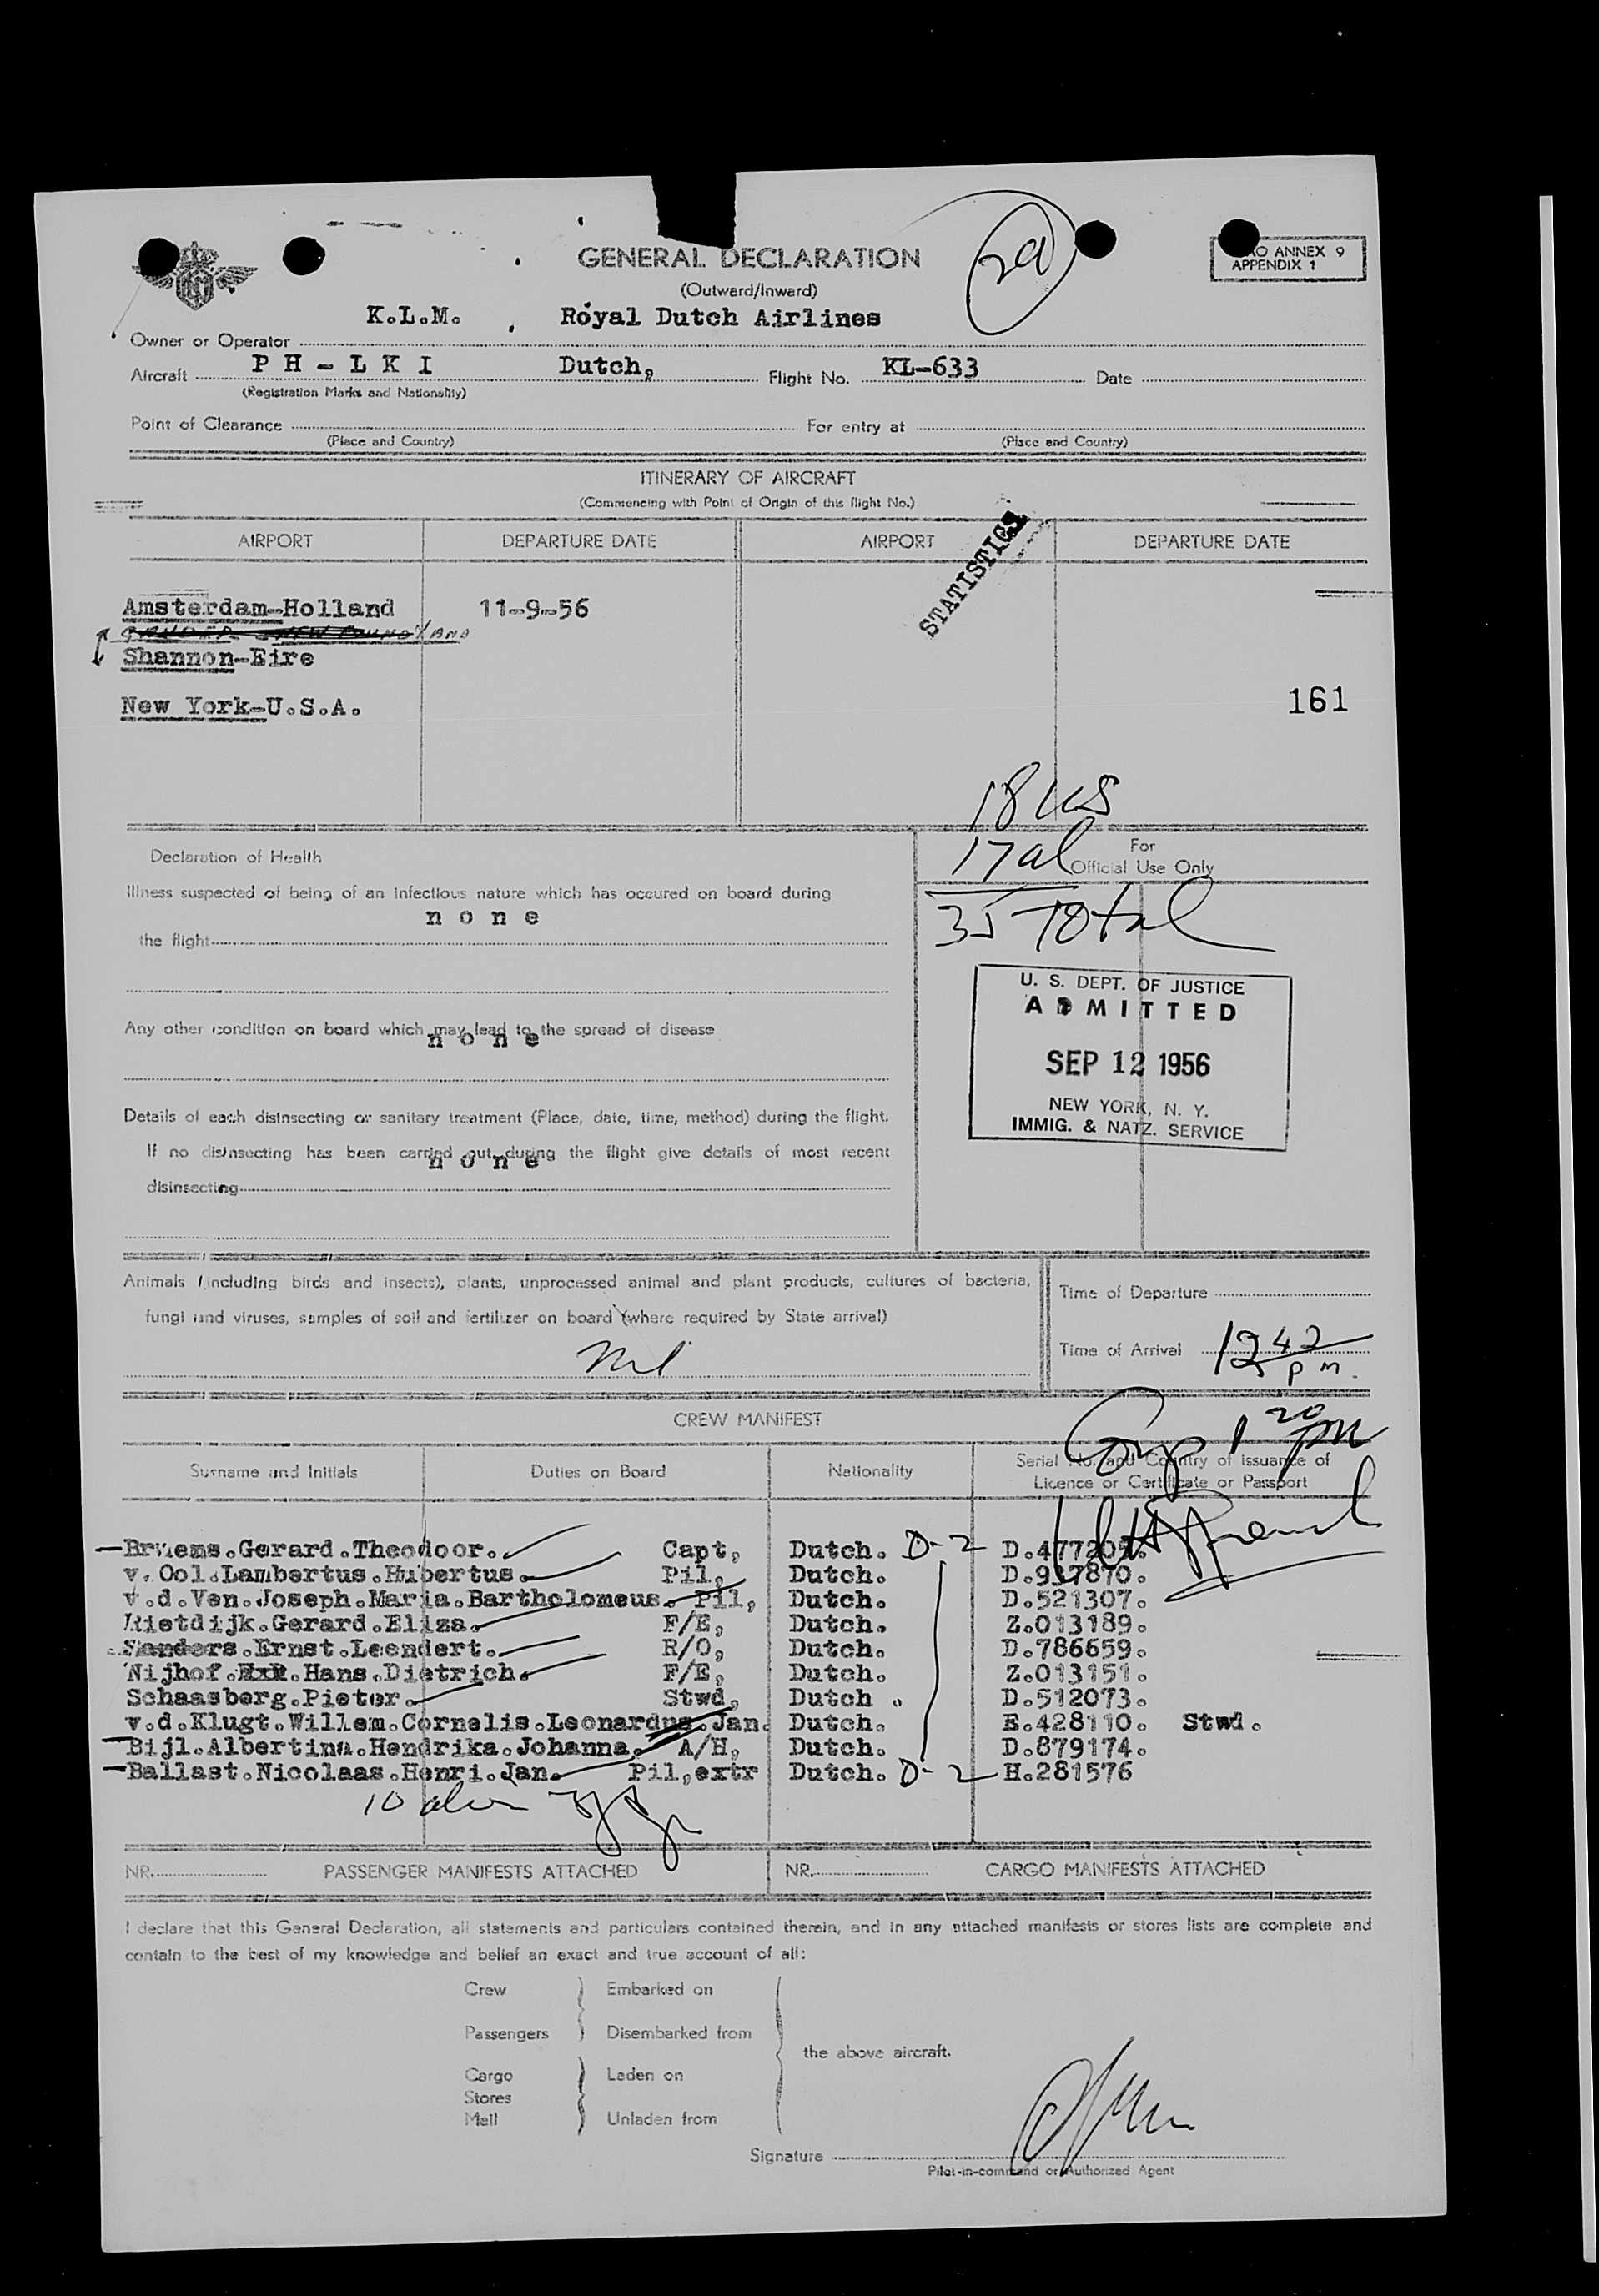 GENERAL DECLARATION
(Outward/Inward)
AO ANNEX 9
APPENDIX 1
K.L.M. Royal Dutch Airlines
Owner or Operator
P H - L K I Dutch, KL-633
Aircraft Flight No. Date
(Registration Marks and Nationality)
Point of Clearance For entry at
(Place and Country) (Place and Country)
ITINERARY OF AIRCRAFT
(Commencing with Point of Origin of this flight No.)
STATISTICS
AIRPORT DEPARTURE DATE AIRPORT DEPARTURE DATE
Amsterdam-Holland 11-9-56
Shannon-Eire
New York-U.S.A.
161
18 US
17 al
35 Total
Declaration of Health
For
Official Use Only
Illness suspected of being of an infectious nature which has occured on board during
n o n e
the flight
Any other condition on board which may lead to the spread of disease
n o n e
U. S. DEPT. OF JUSTICE
ADMITTED
SEP 12 1956
NEW YORK, N. Y.
IMMIG. & NATZ. SERVICE
Details of each disinsecting or sanitary treatment (Place, date, time, method) during the flight.
If no disinsecting has been carried out during the flight give details of most recent
n o n e
disinsecting
Animals (including birds and insects), plants, unprocessed animal and plant products, cultures of bacteria,
fungi and viruses, samples of soil and fertilizer on board (where required by State arrival)
Nil
Time of Departure
Time of Arrival 12 42 pm.
CREW MANIFEST
Comp 1 20 pm
Surname and Initials Duties on Board Nationality Serial No. and Country of Issuance of
Licence or Certificate or Passport
Bruems.Gerard.Theodoor. Capt, Dutch. D-2 D.477205.
v. Ool.Lambertus.Hubertus. Pil, Dutch. D.937870.
v.d.Ven.Joseph.Maria.Bartholomeus. Pil, Dutch. D.521307.
Rietdijk.Gerard.Eliza. F/E, Dutch. Z.013189.
Sanders.Ernst.Leendert. R/O, Dutch. D.786659.
Nijhof.Hans.Dietrich. F/E, Dutch. Z.013151.
Schaasberg.Pieter. Stwd, Dutch . D.512073.
v.d.Klugt.Willem.Cornelis.Leonardus.Jan. Dutch. E.428110. Stwd.
Bijl.Albertina.Hendrika.Johanna. A/H, Dutch. D.879174.
Ballast.Nicolaas.Henri.Jan. Pil,extr Dutch. D-2 H.281576
10
NR. PASSENGER MANIFESTS ATTACHED NR. CARGO MANIFESTS ATTACHED
I declare that this General Declaration, all statements and particulars contained therein, and in any attached manifests or stores lists are complete and
contain to the best of my knowledge and belief an exact and true account of all:
Crew Embarked on
Passengers Disembarked from
the above aircraft.
Cargo Laden on
Stores
Mail Unladen from
Signature
Pilot-in-command or Authorized Agent